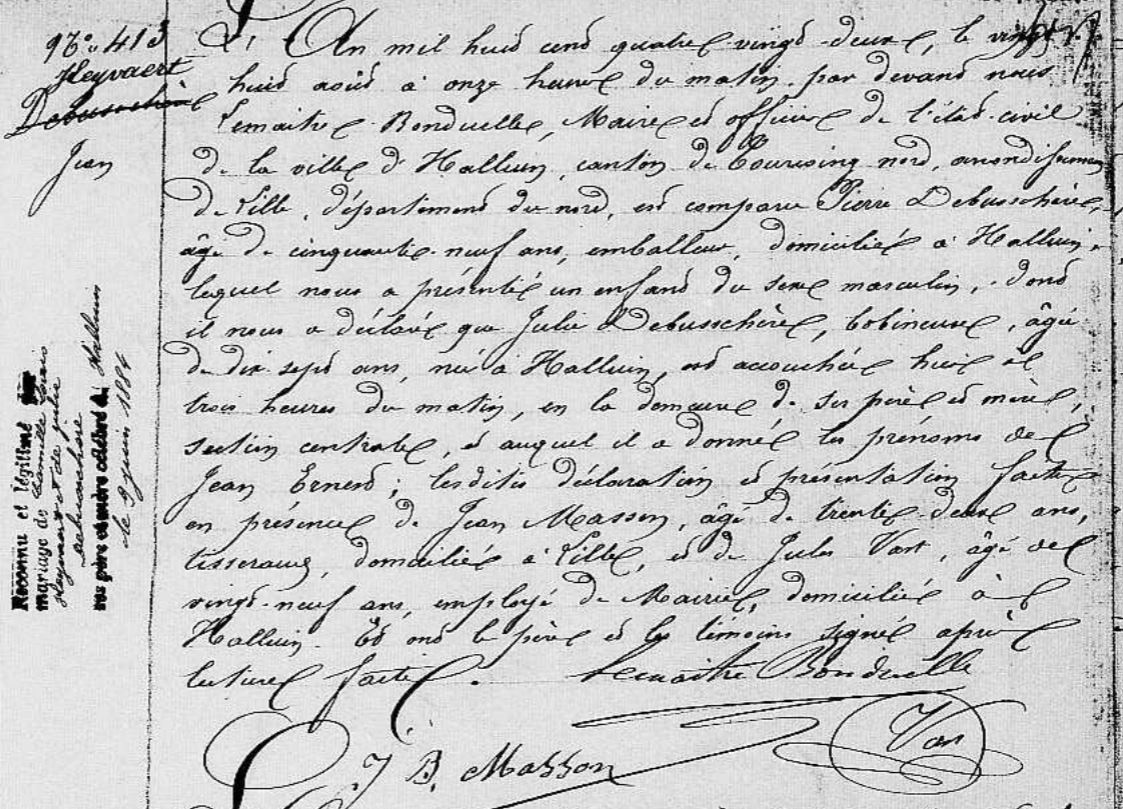 No. 413
Heyvaert
Debusschère
Jean
L'An mil huit cent quatre-vingt-deux, le vingt
huit août à onze heures du matin par devant nous
Lemaitre Bonduelle, Maire et officier de l'état-civil
de la ville d'Halluin, canton de Tourcoing nord, arrondissement
de Lille, département du nord, est comparu Pierre Debusschère,
âgé de cinquante-neuf ans, emballeur, domicilié à Halluin,
lequel nous a présenté un enfant du sexe masculin, dont
il nous a déclaré que Julie Debusschère, bobineuse, âgée
de dix sept ans, née à Halluin, est accouchée hier à
trois heures du matin, en la demeure de ses père et mère,
section centrale, et auquel il a donné les prénoms de
Jean Ernest; lesdites déclaration et présentation faites
en présence de Jean Masson, âgé de trente-deux ans,
tisserand, domicilié à Lille, et de Jules Vart, âgé de
vingt-neuf ans, employé de Mairie, domicilié à
Halluin. Et ont le père et les témoins signé après
lecture faite.
Lemaitre Bonduelle
J B Masson
Var
Reconnu et légitimé par
mariage de Camille
Heyvaert et de Julie
Debusschère
ses père et mère célébré à Halluin
le 9 juin 1884